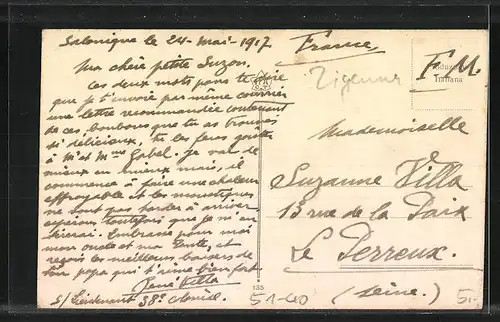 Salonique le 24-mai-1917
Ma chère petite Suzon.
Ces deux mots pour te dire
que je t'envoie par même courrier
une lettre recommandée contenant
de ces bonbons que tu as trouvés
si délicieux, tu les feras goûter
à Mr et Mme Gobel. Je vais de
mieux en mieux mais, il
commence à faire une chaleur
effroyable et les moustiques
ne vont pas tarder à arriver
espérons toutefois que je m'en
tirerai. Embrasse pour moi
mon oncle et ma tante, et
reçois les meilleurs baisers de
ton papa qui t'aime bien fort
René Villa
S/Lieutenant 38e colonial
135
France
F.M.
Zigeuner
Mademoiselle
Suzanne Villa
13 rue de la Paix
Le Perreux.
(Seine.)
51-40
5.-